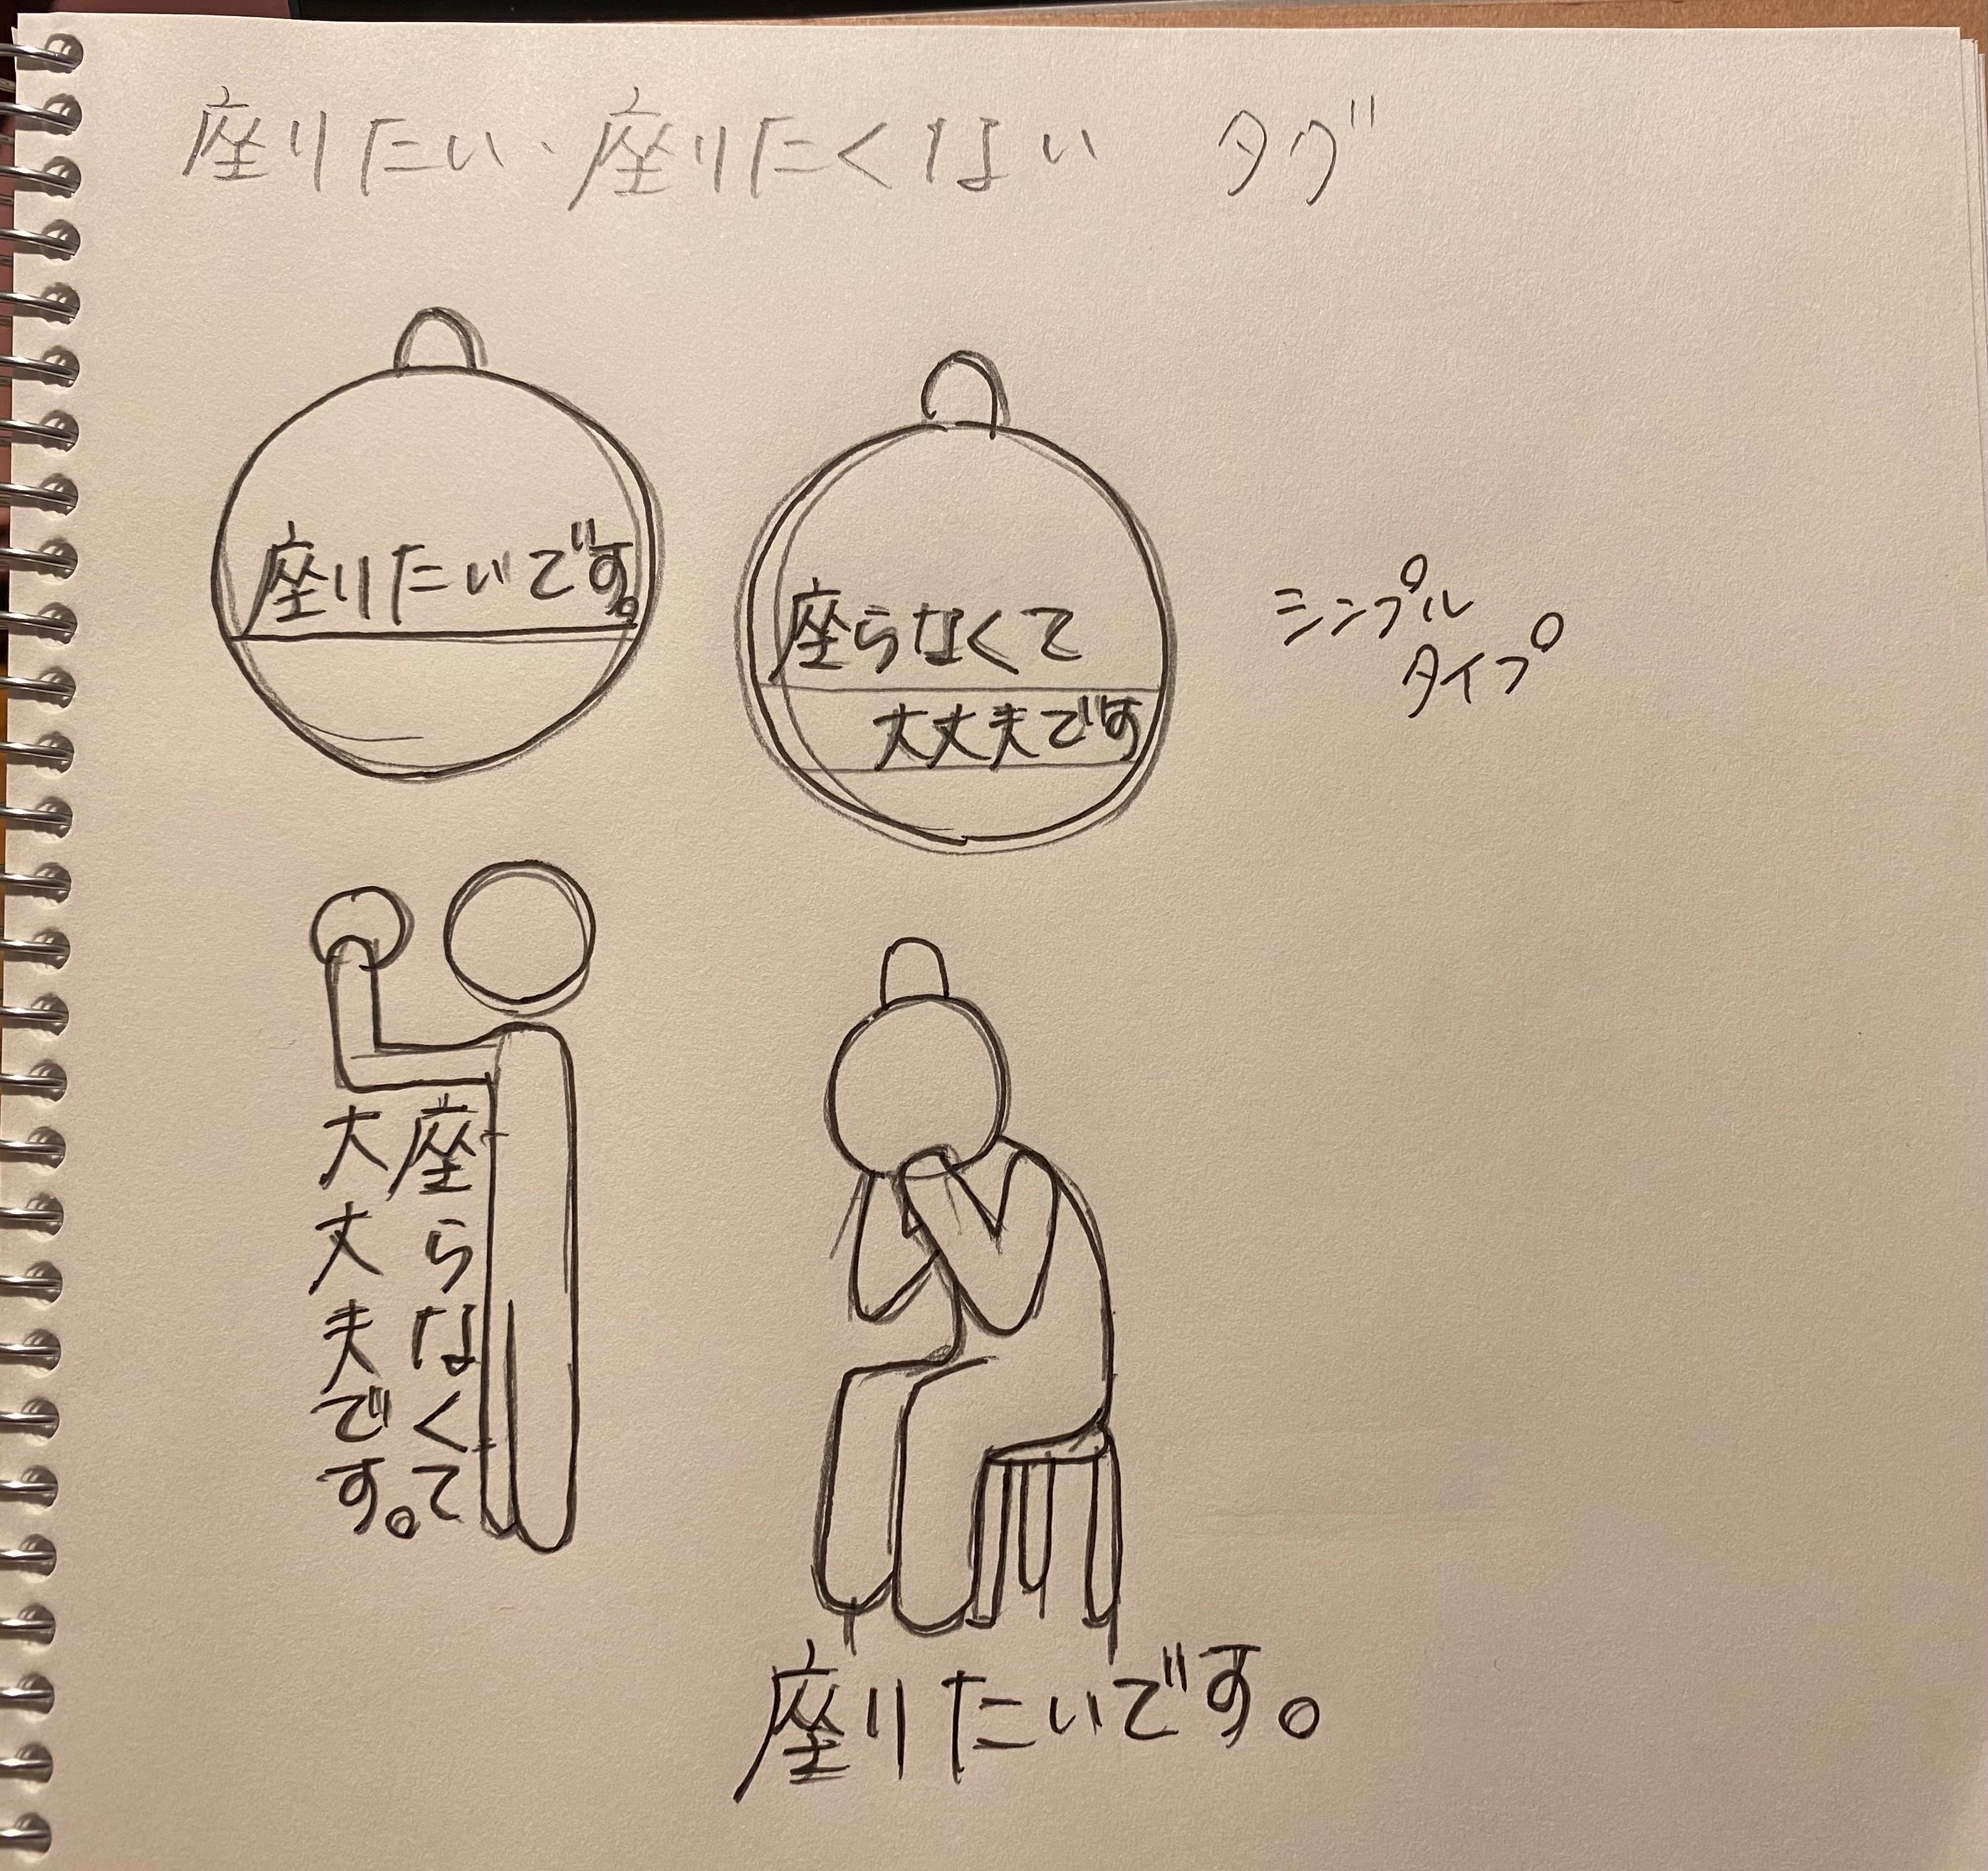 座りたい、座りたくない タグ
座りたいです。
座らなくて
大丈夫です
シンプル
タイプ
座らなくて
大丈夫です。
座りたいです。